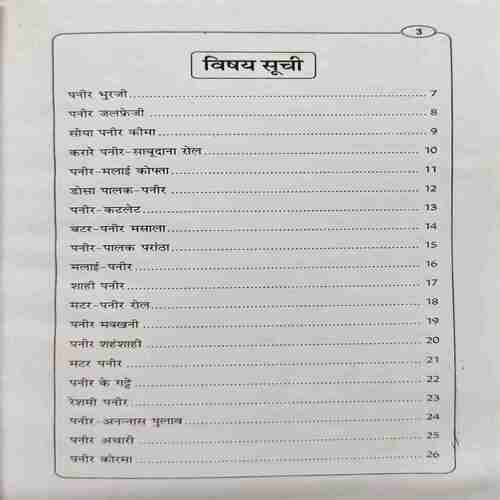 3
विषय सूची
पनीर भुरजी 7
पनीर जलफ्रेजी 8
सोया पनीर कीमा 9
करारे पनीर-साबूदाना रोल 10
पनीर-मलाई कोफ्ता 11
डोसा पालक-पनीर 12
पनीर-कटलेट 13
बटर-पनीर मसाला 14
पनीर-पालक परांठा 15
मलाई-पनीर 16
शाही पनीर 17
मटर-पनीर रोल 18
पनीर मक्खनी 19
पनीर शहंशाही 20
मटर पनीर 21
पनीर के गट्टे 22
रेशमी पनीर 23
पनीर-अनन्नास पुलाव 24
पनीर अचारी 25
पनीर कोरमा 26